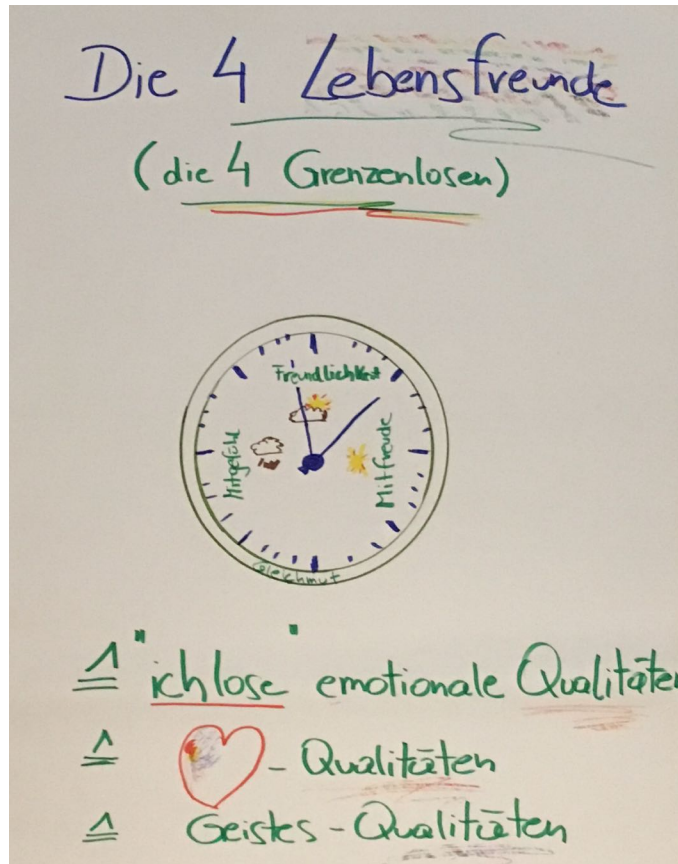 Die 4 Lebensfreunde
(die 4 Grenzenlosen)
Freundlichkeit
Mitgefühl
Mitfreude
Gleichmut
≙ "ichlose" emotionale Qualitäten
≙ ♡-Qualitäten
≙ Geistes-Qualitäten